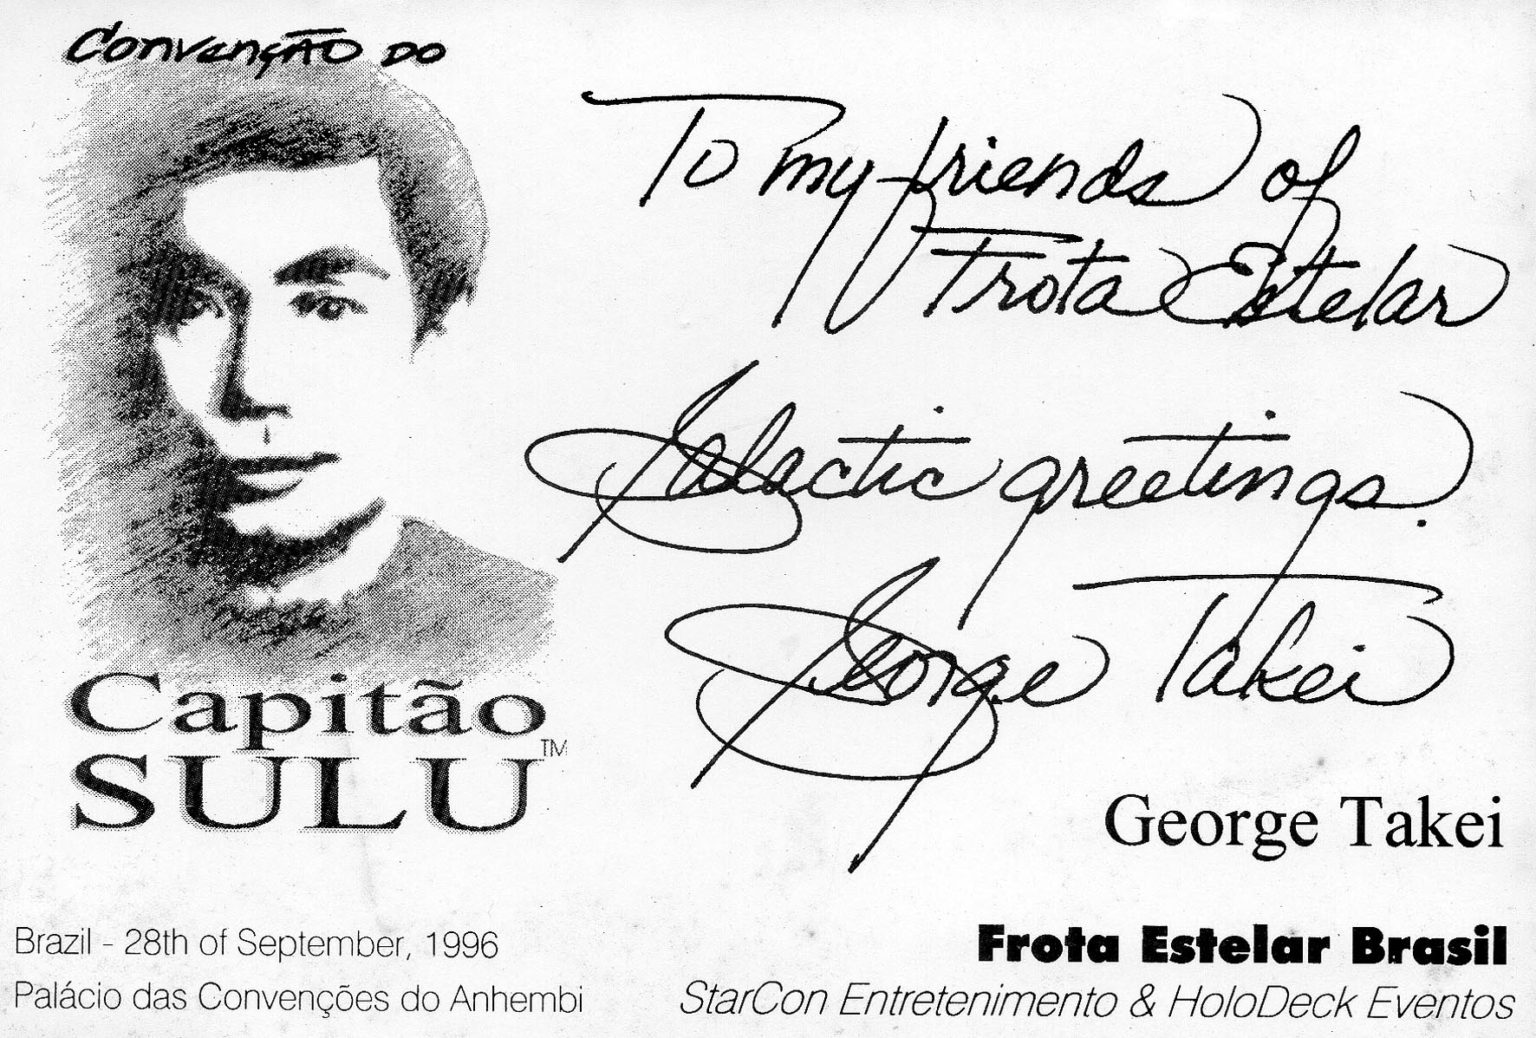 Convenção do
To my friends of
Frota Estelar
Galactic greetings.
George Takei
Capitão
SULU™
George Takei
Brazil - 28th of September, 1996
Palácio das Convenções do Anhembi
Frota Estelar Brasil
StarCon Entretenimento & HoloDeck Eventos